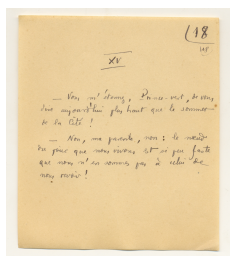 (18
XV
— Vous m'étonnez, si vous
aujourd'hui plus haut que le sommet
de la Cité !
— Non, ma parente, non : le nœud
du pour que nous vivons est si peu
que nous n'en sommes pas à celui de
nous revoir !